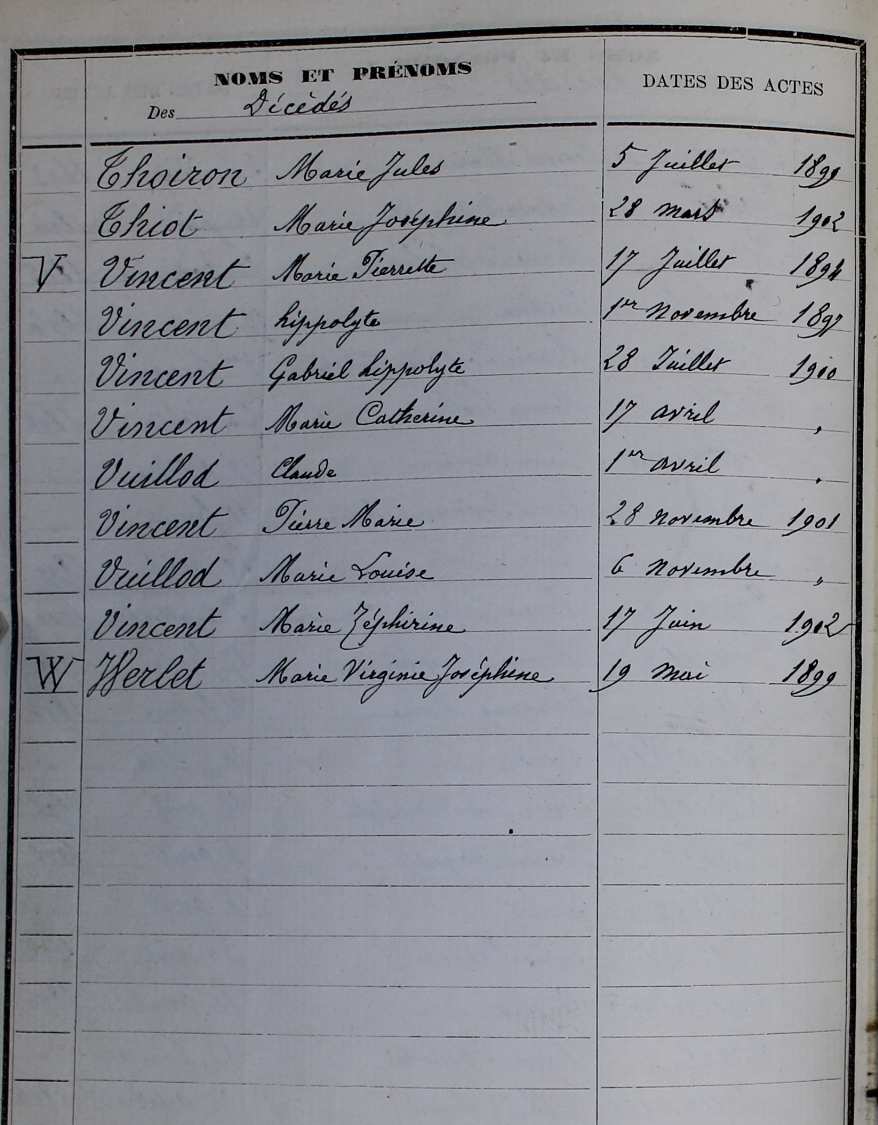 NOMS ET PRÉNOMS DATES DES ACTES
Des Décédés
Thoiron Marie Jules 5 Juillet 1899
Thiot Marie Joséphine 28 mars 1902
V Vincent Marie Pierrette 17 Juillet 1894
Vincent hippolyte 1er novembre 1897
Vincent Gabriel hippolyte 28 Juillet 1900
Vincent Marie Catherine 17 avril "
Vuillod Claude 1er avril "
Vincent Pierre Marie 28 novembre 1901
Vuillod Marie Louise 6 novembre "
Vincent Marie Zéphirine 17 Juin 1902
W Werlet Marie Virginie Joséphine 19 mai 1899